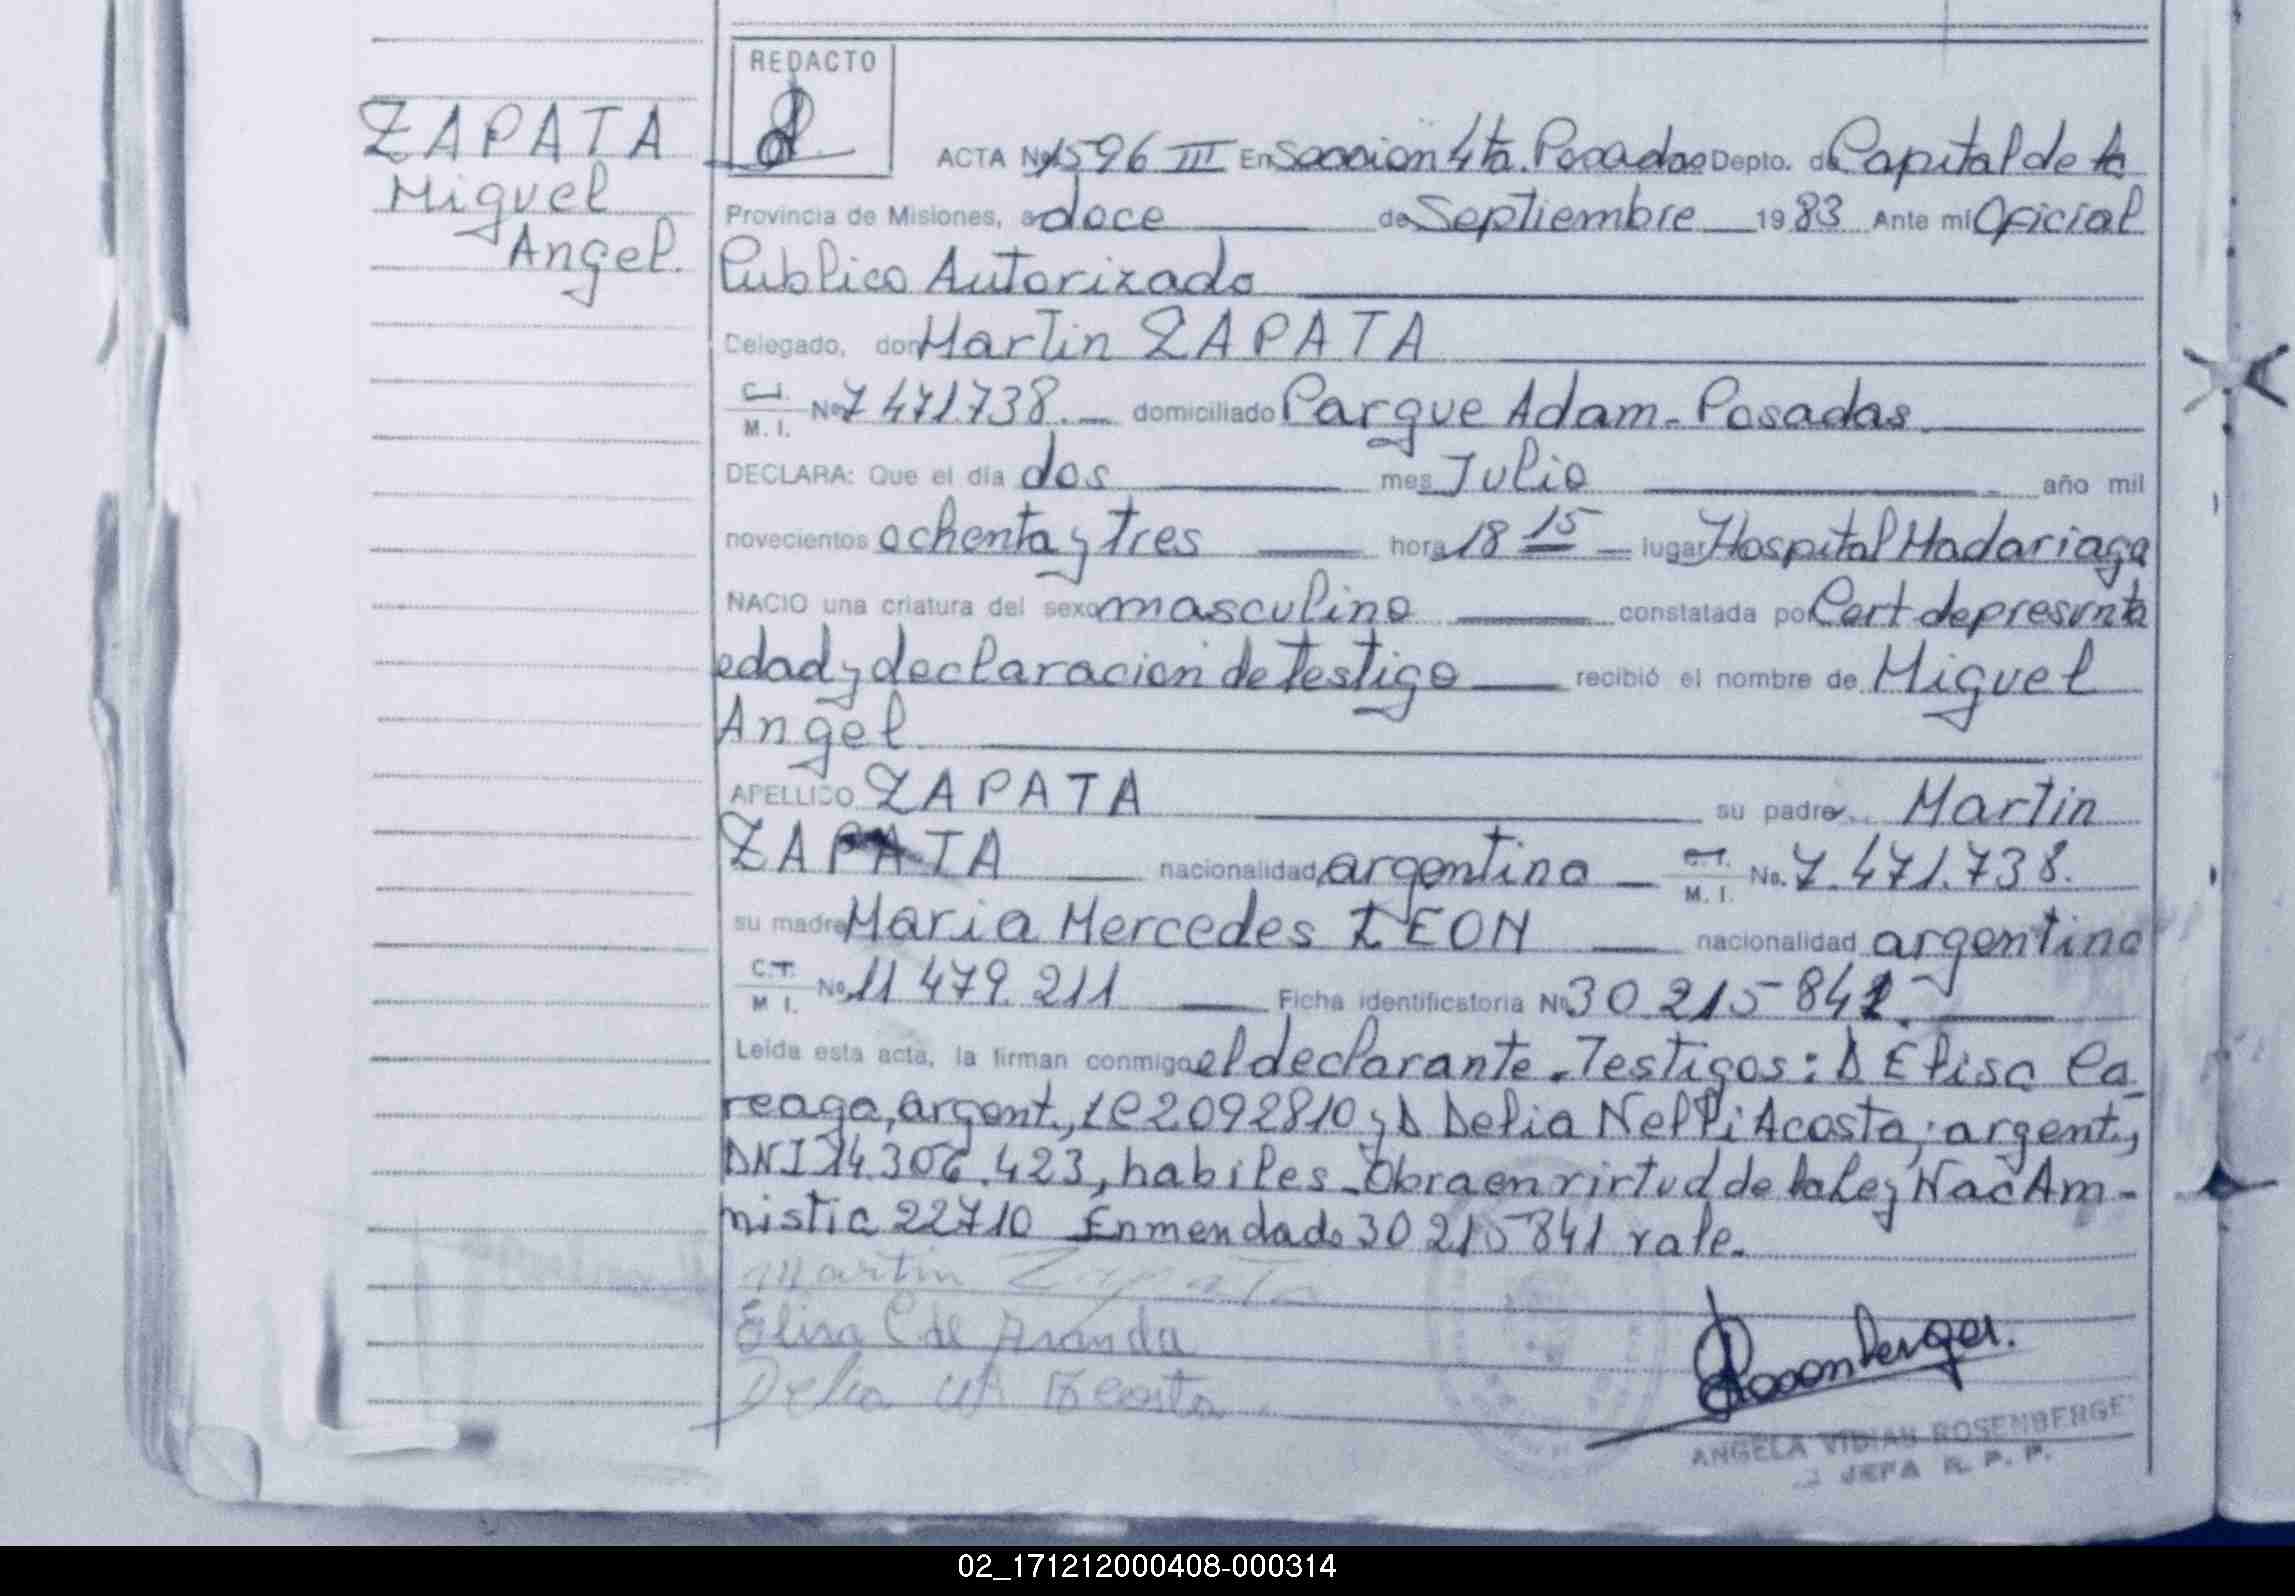 REDACTO
ZAPATA
Miguel
Angel.
ACTA Nº 1596 III En Seccion 4ta. Posadas Depto. de Capital de la
Provincia de Misiones, a doce de Septiembre 1983 Ante mi Oficial
Publico Autorizado
Delegado, don Martin ZAPATA
C.I.
M. I. Nº 7 471.738. domiciliado Parque Adam - Posadas
DECLARA: Que el día dos mes Julio año mil
novecientos ochenta y tres hora 18 15 lugar Hospital Madariaga
NACIO una criatura del sexo masculino constatada por Cert de presunta
edad y declaracion de testigo recibió el nombre de Miguel
Angel
APELLIDO ZAPATA su padre Martin
ZAPATA nacionalidad argentina C.I.
M. I. No. 7.471.738.
su madre Maria Mercedes LEON nacionalidad argentina
C.I.
M I. No. 11 479. 211 Ficha identificatoria Nº 30 215 841.
Leída esta acta, la firman conmigo el declarante. Testigos: D Elisa Ca-
reaga, argent., LC 2092810 y D Delia Nelli Acosta, argent.,
DNI 14.306.423, habiles - Obra en virtud de la Ley Nac Am-
nistia 22710 Enmendado 30 215 841 vale.
Martin Zapata
Elisa C de Aranda
Delia Acosta
Rosenberger.
ANGELA VIVIAN ROSENBERGE
JEFA R. P. P.
02_171212000408-000314